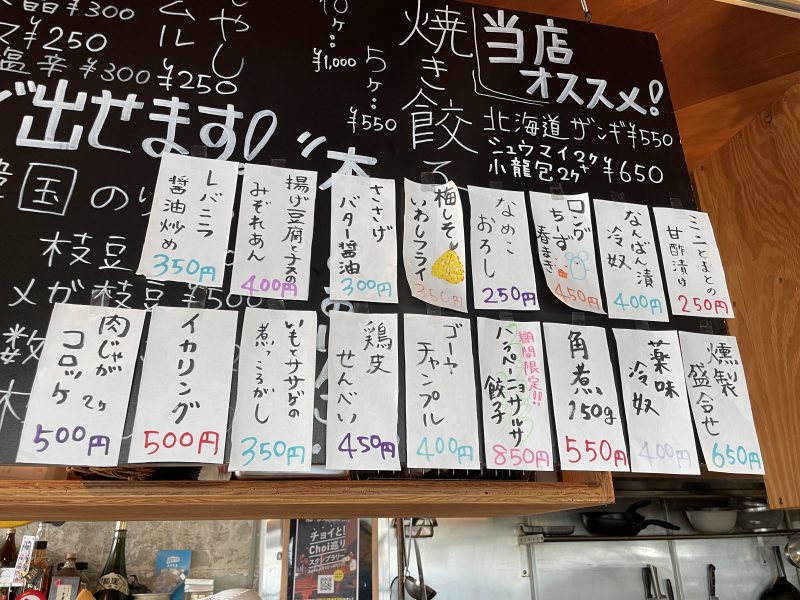 当店
オススメ!
北海道ザンギ¥550
シュウマイ2ケ
小龍包2ケ
¥650
焼き餃子
5ケ‥
¥550
10ケ‥
¥1,000
¥300
¥250
塩辛 ¥300
¥250
出せます!
枝豆
メガ枝豆 ¥500
ミニとまとの
甘酢漬け
250円
なんばん漬
冷奴
400円
ロング
ちーず
春まき
450円
なめこ
おろし
250円
梅しそ
いわしフライ
350円
ささげ
バター醤油
300円
揚げ豆腐とナスの
みぞれあん
400円
レバニラ
醤油炒め
350円
燻製
盛合せ
650円
薬味
冷奴
400円
角煮
150g
550円
期間限定!!
ハラペーニョサルサ
餃子
850円
ゴーヤ
チャンプル
400円
鶏皮
せんべい
450円
いもとササゲの
煮っころがし
350円
イカリング
500円
肉じゃが
コロッケ 2ケ
500円
チョイと!
Choi巡り
スタンプラリー